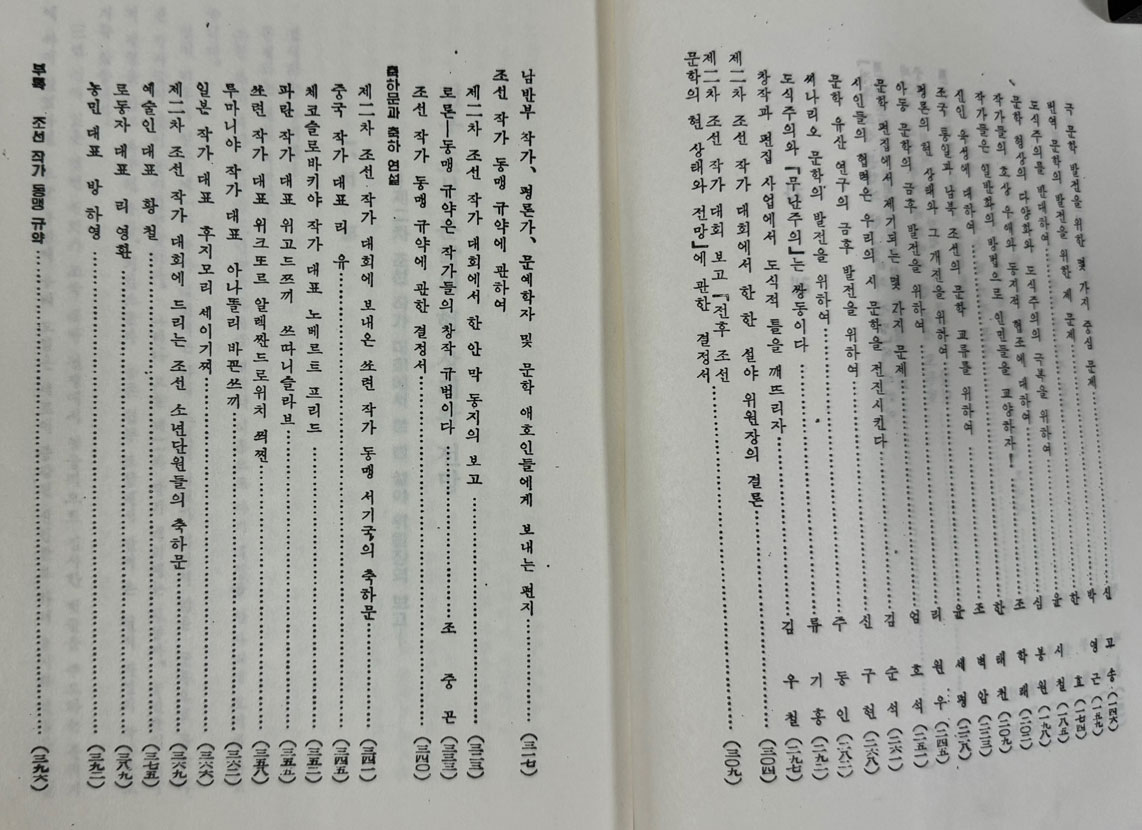 극 문학 발전을 위한 몇 가지 중심 문제……신 고송 (一四六)
번역 문학의 발전을 위한 제 문제……박 영근 (一五九)
도식주의를 반대하여……한 효 (一七四)
문학 형상의 다양화와 도식주의의 극복을 위하여……윤 시철 (一八五)
작가들의 호상 우애와 동지적 협조에 대하여……심 봉원 (一九八)
작가들은 일반화의 방법으로 인민들을 교양하자!……조 학래 (二〇二)
신인 육성에 대하여……한 태천 (二〇九)
조국 통일과 남북 조선의 문학 교류를 위하여……조 벽암 (二二三)
평론의 현 상태와 그 개전을 위하여……윤 세평 (二二八)
아동 문학의 금후 발전을 위하여……리 원우 (二四五)
문학 편집에서 제기되는 몇 가지 문제……엄 호석 (二五一)
시인들의 협력은 우리의 시 문학을 전진시킨다……김 순석 (二六一)
문학 유산 연구의 금후 발전을 위하여……신 구현 (二六八)
씨나리오 문학의 발전을 위하여……주 동인 (二八二)
도식주의와 『무난주의』는 짱동이다……류 기홍 (二九二)
창작과 편집 사업에서 도식적 틀을 깨뜨리자……김 우철 (二九七)
제二차 조선 작가 대회에서 한 한 설야 위원장의 결론……(三〇四)
제二차 조선 작가 대회 보고 『전후 조선
문학의 현 상태와 전망』에 관한 결정서……(三〇九)
남반부 작가, 평론가, 문예학자 및 문학 애호인들에게 보내는 편지……(三一七)
조선 작가 동맹 규약에 관하여
제二차 조선 작가 대회에서 한 안 막 동지의 보고……(三二三)
토론—동맹 규약은 작가들의 창작 규범이다……조 중곤 (三三三)
조선 작가 동맹 규약에 관한 결정서……(三四〇)
축하문과 축하 연설
제二차 조선 작가 대회에 보내온 쏘련 작가 동맹 서기국의 축하문……(三四一)
중국 작가 대표 리 유……(三四五)
체코슬로바키야 작가 대표 노베르트 프리드……(三五二)
파란 작가 대표 위고드쯔끼 쓰따니슬라브……(三五五)
쏘련 작가 대표 위크또르 알렉싼드로위치 쬐쩐……(三五八)
루마니야 작가 대표 아나똘리 바꼰쓰끼……(三六二)
일본 작가 대표 후지모리 세이기찌……(三六六)
제二차 조선 작가 대회에 드리는 조선 소년단원들의 축하문……(三六九)
예술인 대표 황 철……(三七五)
로동자 대표 리 영환……(三八九)
농민 대표 방 하영……(三九二)
부록 조선 작가 동맹 규약……(三九六)